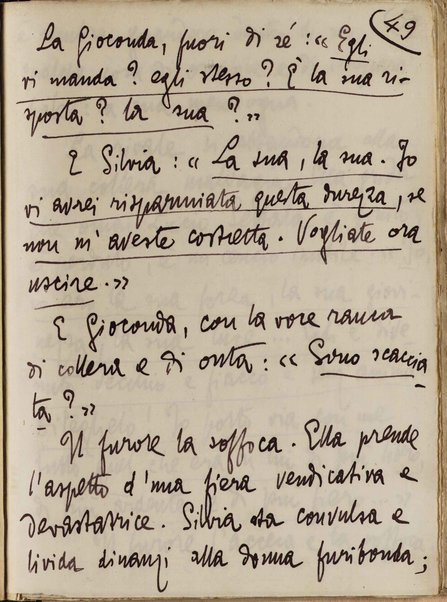 49
La Gioconda, fuori di sé : « Egli
vi manda ? egli stesso ? È la sua ri-
sposta ? la sua ? »
E Silvia : « La sua, la sua. Io
vi avrei risparmiata questa durezza, se
non m'aveste costretta. Vogliate ora
uscire. »
E Gioconda, con la voce rauca
di collera e di onta : « Sono scaccia
ta ? »
Il furore la soffoca. Ella prende
l'aspetto d'una fiera vendicativa e
devastatrice. Silvia sta convulsa e
livida dinanzi alla donna furibonda ;